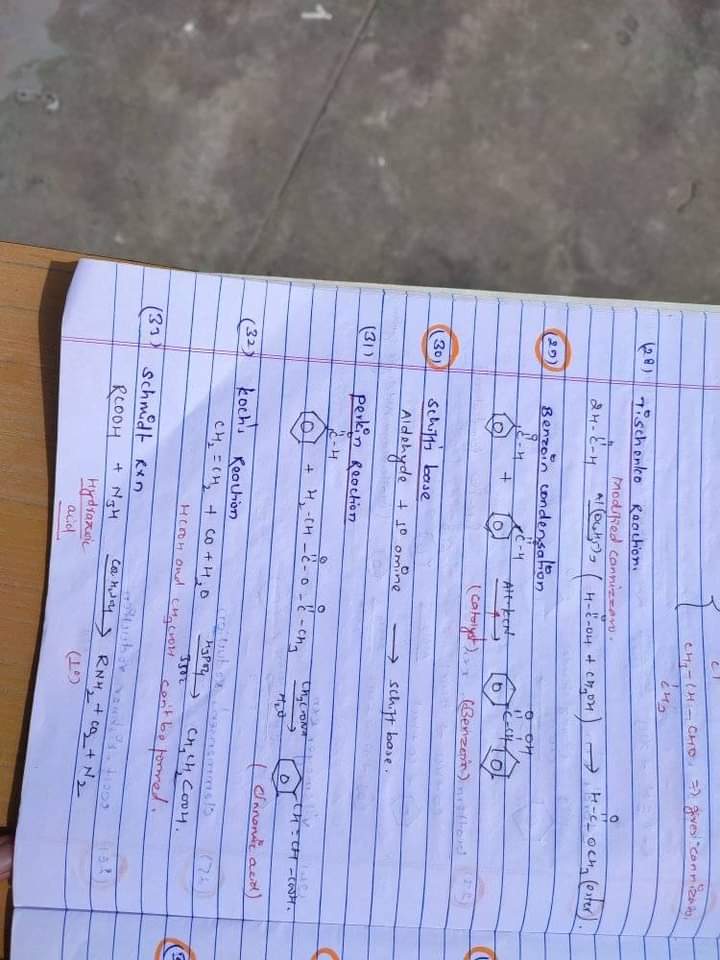 CH3 - CH - CHO, => gives cannizaro
CH3
(28) Tischenko Reaction.
Modified cannizzaro.
2H-C-H Al(OC2H5)3 (H-C-OH + CH3OH) → H-C-OCH3 (ester).
O O O
(29) Benzoin condensation
C-H + C-H Alc. KCN → C-CH
O O O OH
(catalyst) (Benzoin)
(30) Schiff base
Aldehyde + 1° amine → Schiff base.
(31) Perkin Reaction
C-H + H2-CH-C-O-C-CH3 CH3COONa → CH=CH-COOH.
O O O H2O
(Cinnamic acid)
(32) Koch's Reaction
CH2=CH2 + CO + H2O H3PO4 → CH3CH2COOH.
HCOOH and CH3COOH can't be formed.
(33) Schmidt Rxn
RCOOH + N3H Conc. H2SO4 → RNH2 + CO2 + N2
Hydrazoic (1°)
acid